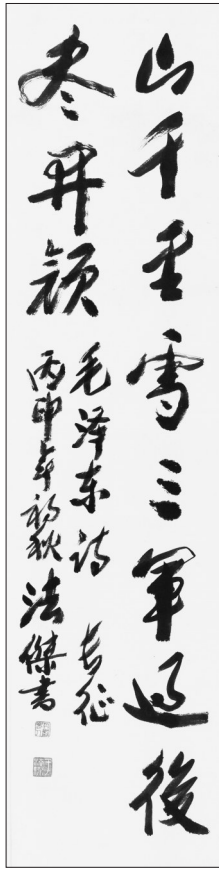 山千里雪三軍过後
尽开颜
毛泽东诗 长征
丙申年初秋 法傑書